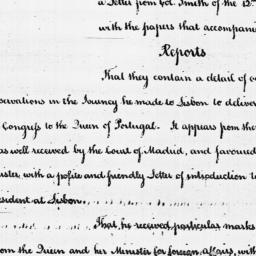 a Letter from Col. Smith of the 12th
with the papers that accompani
Reports
That they contain a detail of
servations in the Journey he made to Lisbon to deliver
Congress to the Queen of Portugal. It appears from the
as well received by the Court of Madrid, and favoured
ister, with a polite and friendly Letter of introduction to
esident at Lisbon
That he received particular marks
om the Queen and her Minister for foreign affairs, with